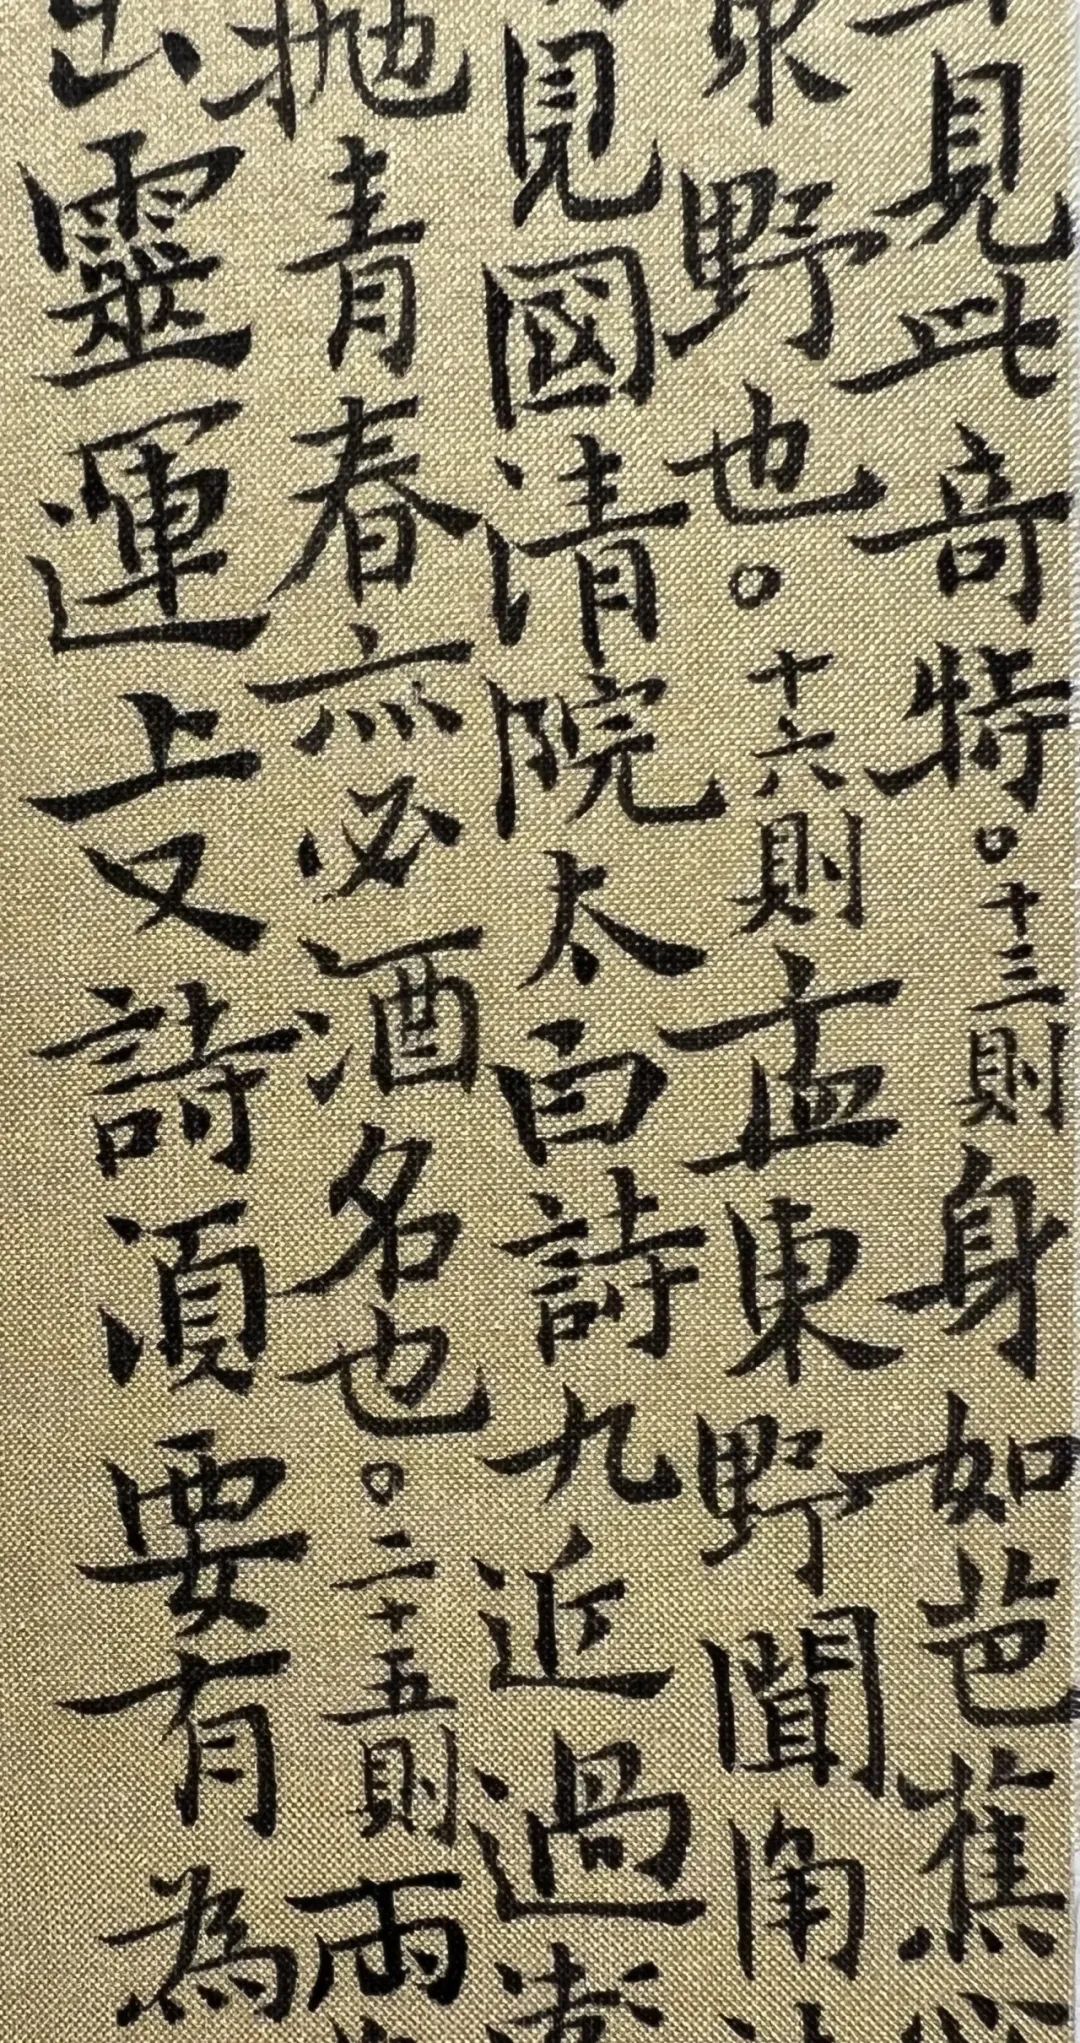 見此奇特。十三則身如芭蕉
東野也。十六則孟東野聞角
見國清院太白詩九近過
拋青春亦必酒名也。二十五則兩
出靈運上又詩須要有為